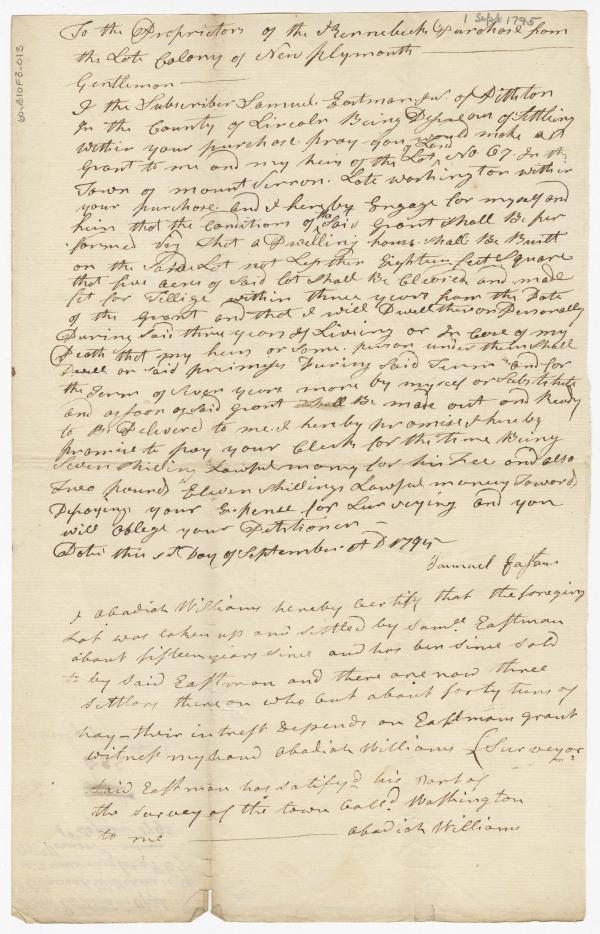 1 Sept 1795
60-810F3-013
To the Proprietors of the Kennebeck Purchase from
the Late Colony of New plymouth
Gentlemen
I the Subscriber Samuel Eastman Jur. of Pittston
In the County of Lincoln Being Desirous of Settling
within your purchase pray you would make a
Grant to me and my heirs of the Lot of Land No. 67. In the
Town of mount Vernon. Late washington within
your purchase and I hereby Engage for myself and
him that the Conditions of the Said Grant Shall be per
formed viz that a Dwelling house Shall be Built
on the Said Lot not Less then Eighteen feet Square
that five acres of Said lot Shall Be Cleried and made
fit for Tillige within three years from the Date
of the Grant and that I will Dwell thereon Personally
During Said three years if Liveing or In Case of my
Death that my heirs or Some person under them Shall
Dwell on Said primises During Said Term and for
the Term of Seven years more by myself or Substitute
and as soon as Said Grant Shall Be made out and Ready
to Be Delevered to me I hereby promise I hereby
promise to pay your Clerk for the time Being
Seven Shillings Lawful mony for his Fee and also
Two pounds Eleven Shillings Lawful money Toward
Defraying your Expense for Surveying and you
will oblege your Petitioner
Date this 1st Day of September AD 1795
Samuel Eastman
I Obadiah Williams hereby certify that the foregoing
Lot was taken up and settled by Saml. Eastman
about fifteen years since and has ben since sold
by said Eastman and there are now three
settlers thereon who cut about forty tuns of
hay - their intrest depends on Eastmans grant
witness my hand Obadiah Williams Surveyor
Said Eastman has satisfyd his Part of
the survey of the town calld. Washington
to me Obadiah Williams